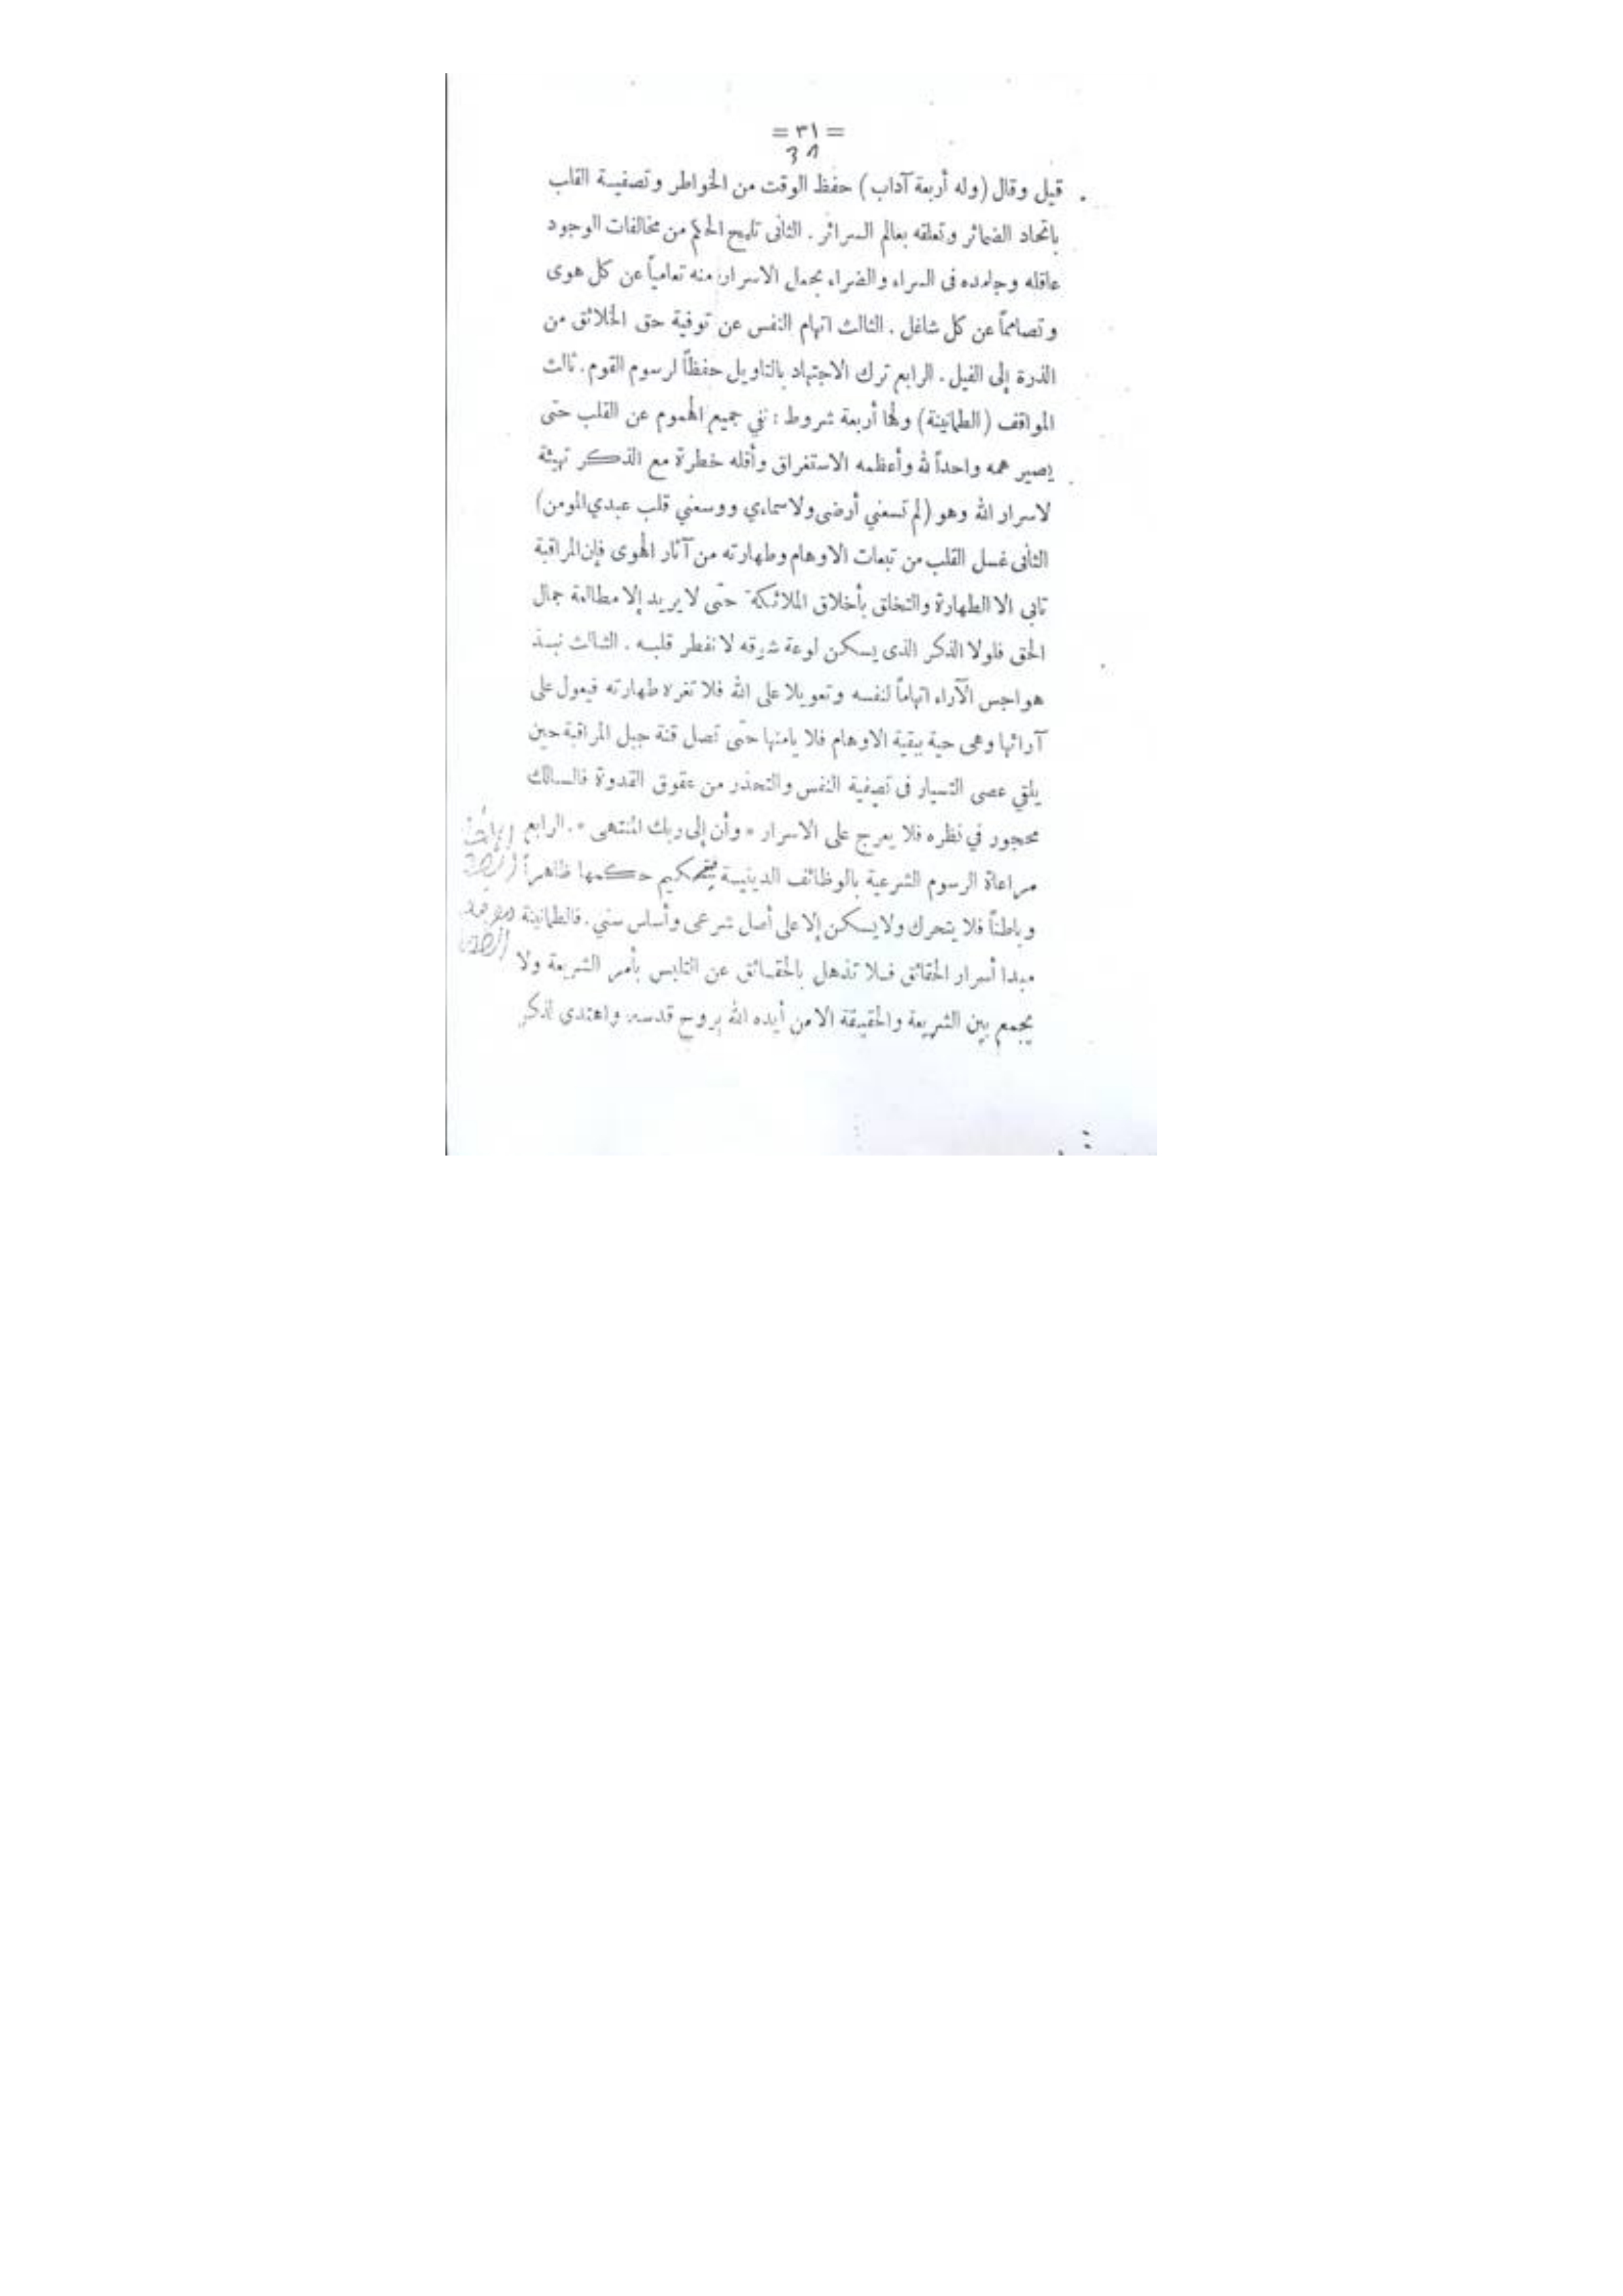 = ٣١ =
31
قيل وقال (وله أربعة آداب) حفظ الوقت من الخواطر وتصفيـة القلب
باتحاد الضمائر وتعلقه بعالم السرائر . الثانى من مخالفات الوجود
عاقله وجامده فى السراء والضراء بحمل الاسرار منه تعامياً عن كل هوى
وتصامماً عن كل شاغل . الثالث اتهام النفس عن توفية حق الخلائق من
الذرة إلى الفيل . الرابع ترك الاجتهاد بالتاويل حفظاً لرسوم القوم . ثالث
المواقف (الطمانينة) ولها أربعة شروط : نفي جميع الهموم عن القلب حتى
يصير همه واحداً لله وأعظمه الاستغراق وأقله خطرة مع الذكر تهيئة
لاسرار الله وهو (لم تسعني أرضى ولا سماءي ووسعني قلب عبدي المومن)
الثانى غسل القلب من تبعات الاوهام وطهارته من آثار الهوى فإن المراقبة
تابى الا الطهارة والتخلق بأخلاق الملائكة حتى لا يريد إلا مطالعة جمال
الحق فلولا الذكر الذى يسكن لوعة شوقه لانفطر قلبـه . الثـالث نبـذ
هواجس الآراء اتهاماً لنفسه وتعويلا على الله فلا تغره طهارته فيعول على
آرائها وهى حية ببقية الاوهام فلا يامنها حتى تصل قنة جبل المراقبة حين
يلقي عصى التسيار فى تصفية النفس والتحذر من عقوق القدوة فالسالك
محجور في نظره فلا يعرج على الاسرار « وأن إلى ربك المنتهى » . الرابع
مراعاة الرسوم الشرعية بالوظائف الدينيـة حكمها ظاهراً
وباطناً فلا يتحرك ولا يسكن إلا على أصل شرعى وأساس سني . فالطمانينة
مبدا أسرار الحقائق فـلا تذهل بالحقـائق عن التلبس بأمر الشريعة ولا
يجمع بين الشريعة والحقيقة الا من أيده الله بروح قدسه واهتدى لذكر